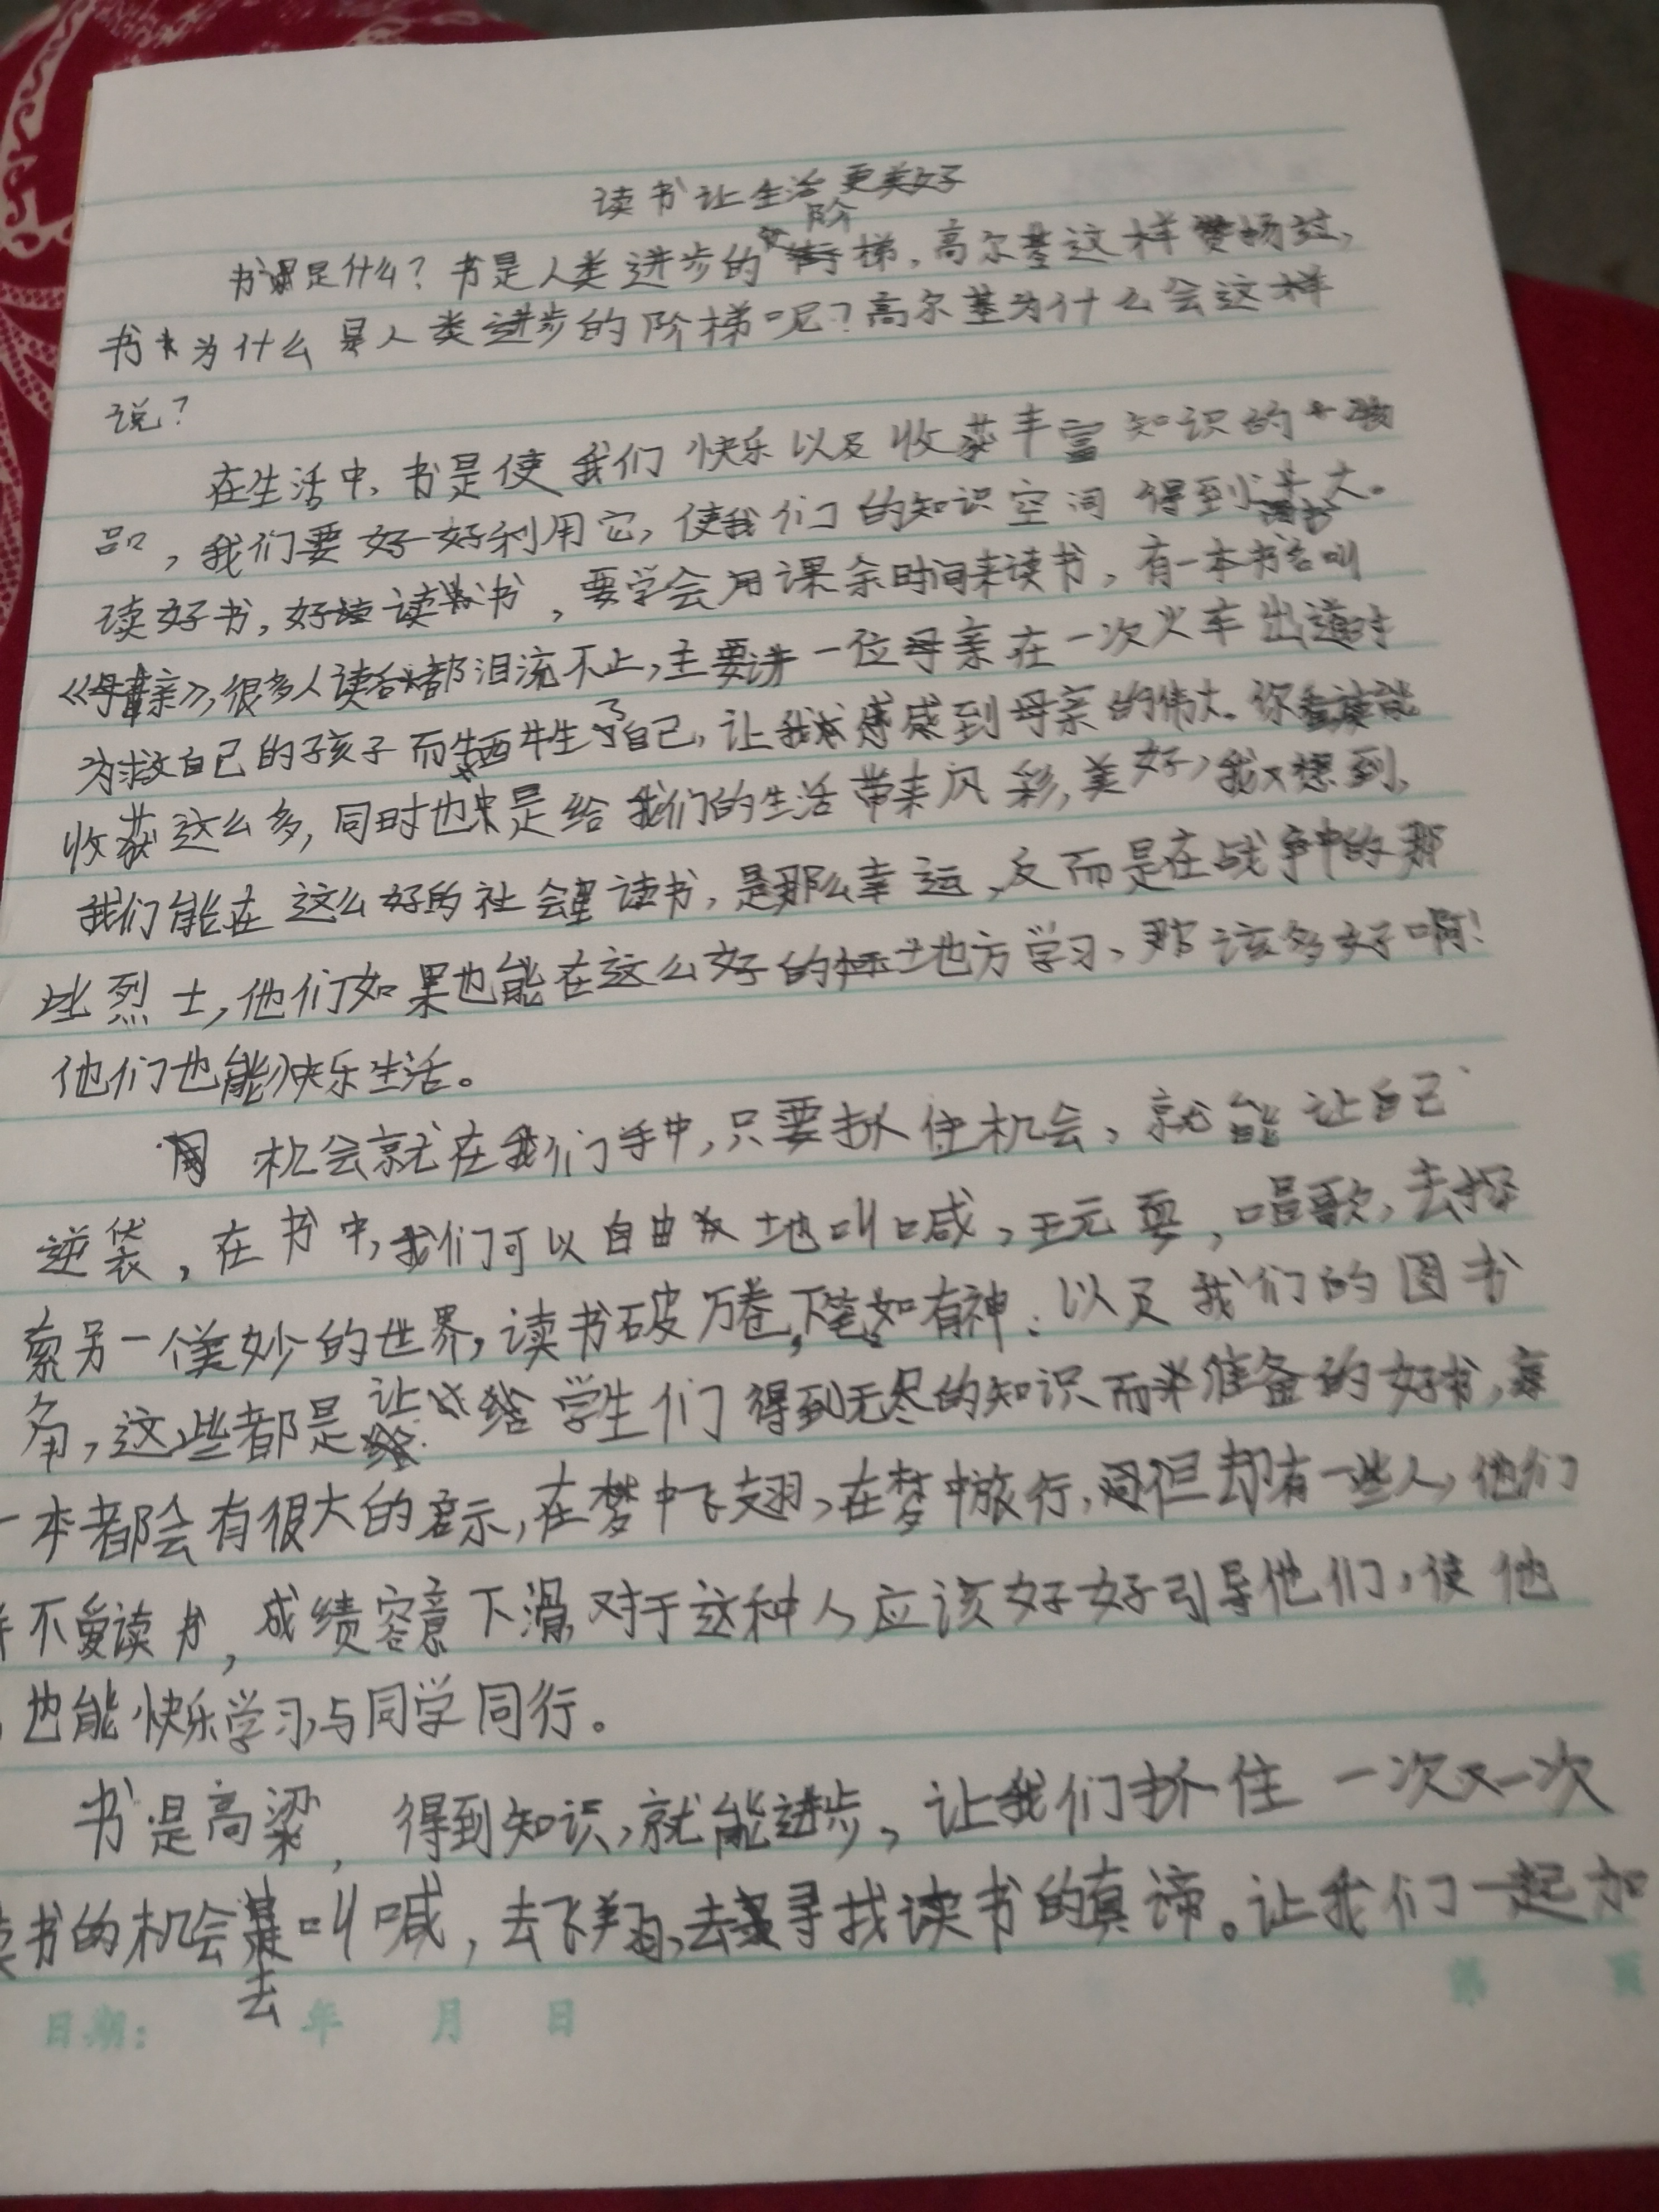 读书让生活更美好
书是什么？书是人类进步的阶梯，高尔基这样赞扬过，
书为什么是人类进步的阶梯呢？高尔基为什么会这样
说？
在生活中，书是使我们快乐以及收获丰富知识的
品，我们要好好利用它，使我们的知识空间得到大。
读好书，好读书，要学会用课余时间来读书，有一本书名叫
《母亲》，很多人读后都泪流不止，主要讲一位母亲在一次火车出道时
为救自己的孩子而牺牲了自己，让我感到母亲的伟大。你读能
收获这么多，同时也是给我们的生活带来风彩，美好，我又想到，
我们能在这么好的社会里读书，是那么幸运，反而是在战争中的那
些烈士，他们如果也能在这么好的土地方学习，那该多好啊！
他们也能快乐生活。
机会就在我们手中，只要抓住机会，就能让自己
逆袭，在书中，我们可以自由地叫喊，玩耍，唱歌，去探
索另一个美妙的世界，读书破万卷，下笔如有神；以及我们的图书
角，这些都是让学生们得到无尽的知识而准备的好书，
一本都会有很大的启示，在梦中飞翔，在梦中旅行，但却有一些人，他们
并不爱读书，成绩容意下滑，对于这种人应该好好引导他们，使他
也能快乐学习，与同学同行。
书是高粱，得到知识，就能进步，让我们抓住一次又一次
读书的机会去叫喊，去飞翔，去寻找读书的真谛。让我们一起加
日期： 年 月 日 第 页